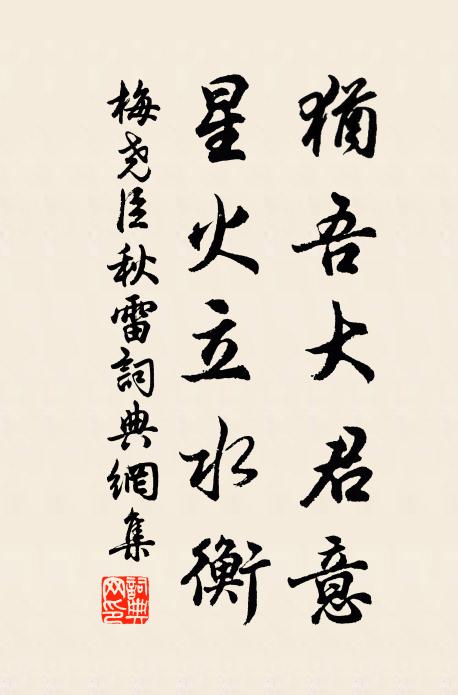 猶吾大君意
星火立水衡
梅尧臣秋雷詞典網集
詞典网印